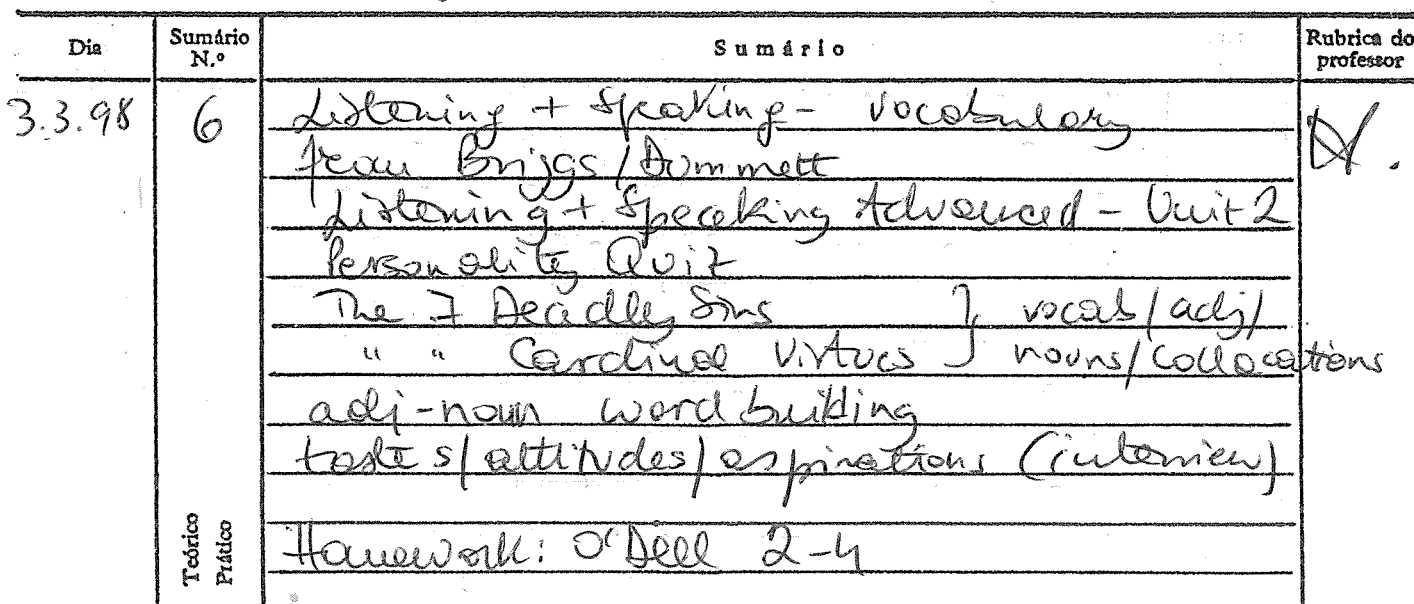 Dia Sumário N.º Sumário Rubrica do professor
3.3.98 6 Listening + Speaking - vocabulary
from Briggs/Dummett
Listening + Speaking Advanced - Unit 2
Personality Quiz
The 7 Deadly Sins } vocab/adj/
" " Cardinal Virtues } nouns/collocations
adj-noun word building
tastes/attitudes/aspirations (interview)
Teórico Prático
Homework: O'Dell 2-4